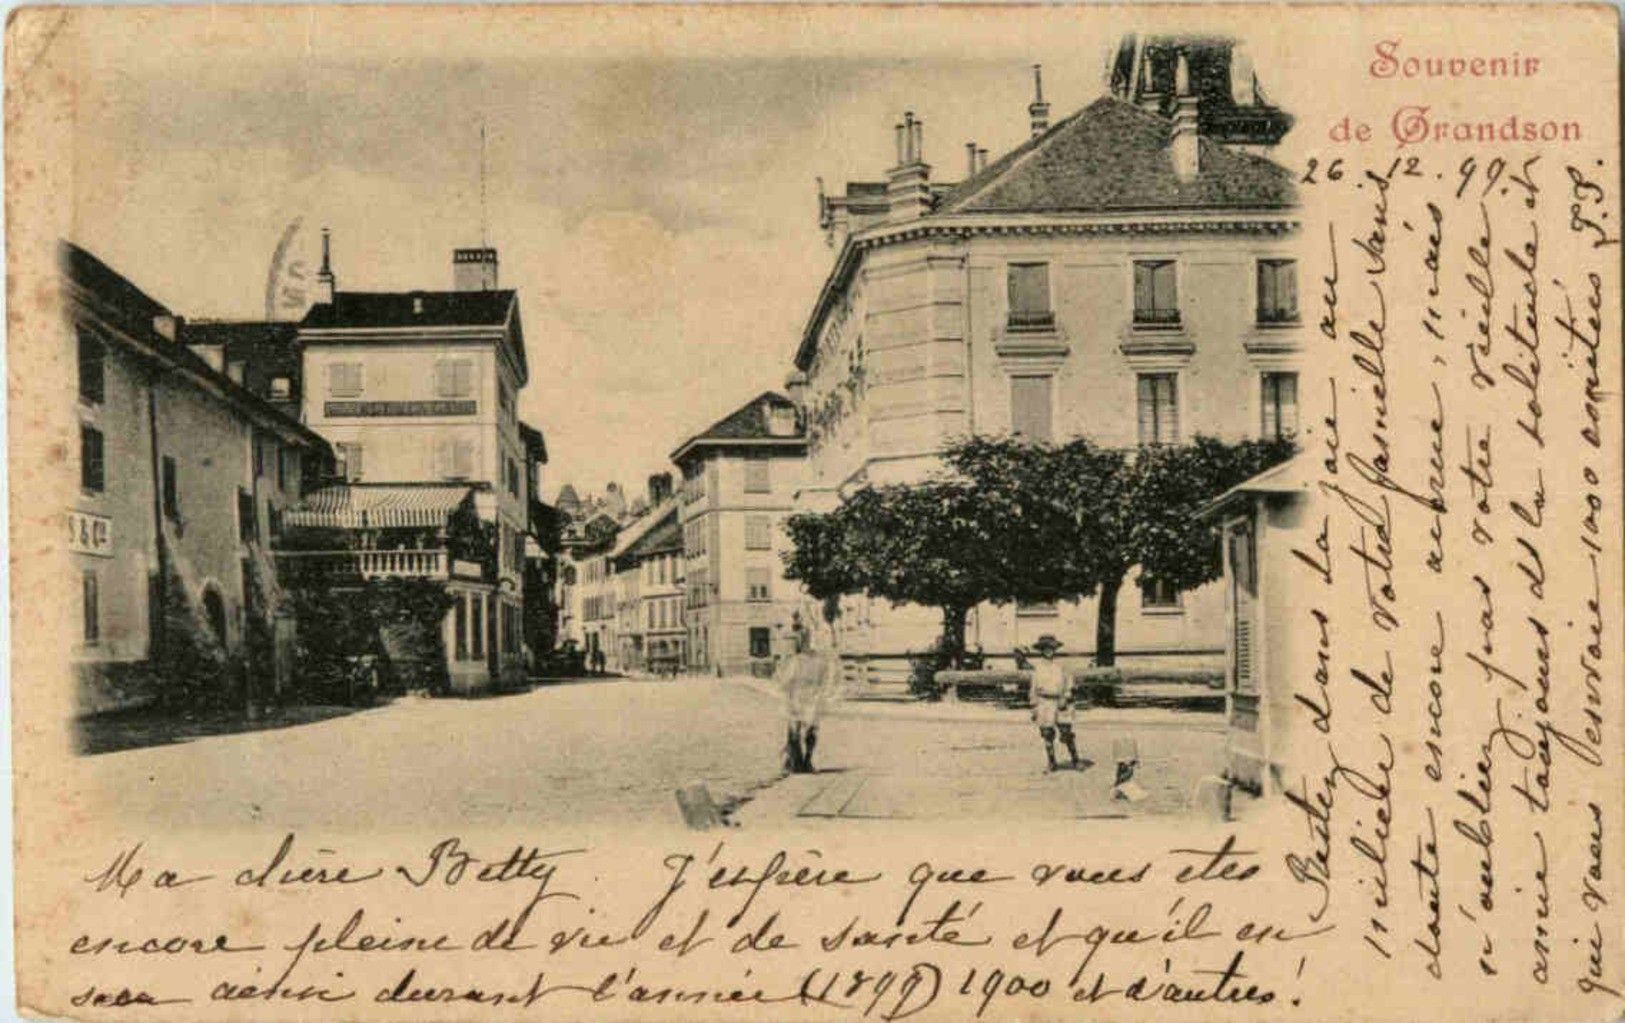 Souvenir
de Grandson
26 12. 99
S & Cie
Ma chère Betty. J'espère que vous etes
encore pleine de vie et de santé et qu'il en
sera ainsi durant l'année (1899) 1900 et d'autres!
Restez dans la joie au
milieu de votre famille sans
doute encore augmentée, mais
n'oubliez pas votre vieille
amie toujours ds la solitude et
qui vous envoie 1000 amitiés J.S.